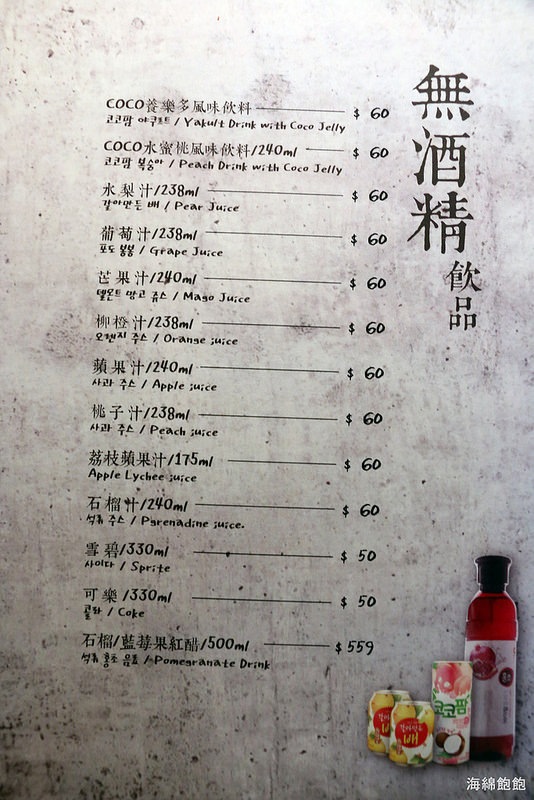 無酒精飲品
COCO養樂多風味飲料 $ 60
코코팜 야쿠르트 / Yakult Drink with Coco Jelly
COCO水蜜桃風味飲料/240ml $ 60
코코팜 복숭아 / Peach Drink with Coco Jelly
水梨汁/238ml $ 60
갈아만든 배 / Pear Juice
葡萄汁/238ml $ 60
포도 봉봉 / Grape Juice
芒果汁/240ml $ 60
델몬트 망고 쥬스 / Mago Juice
柳橙汁/238ml $ 60
오렌지 주스 / Orange juice
蘋果汁/240ml $ 60
사과 주스 / Apple juice
桃子汁/238ml $ 60
사과 주스 / Peach juice
荔枝蘋果汁/175ml $ 60
Apple Lychee juice
石榴汁/240ml $ 60
석류 주스 / Pyrenadine juice.
雪碧/330ml $ 50
사이다 / Sprite
可樂/330ml $ 50
콜라 / Coke
石榴/藍莓果紅醋/500ml $ 559
석류 홍초 음료 / Pomegranate Drink
갈아만든
배
코코팜
海綿飽飽